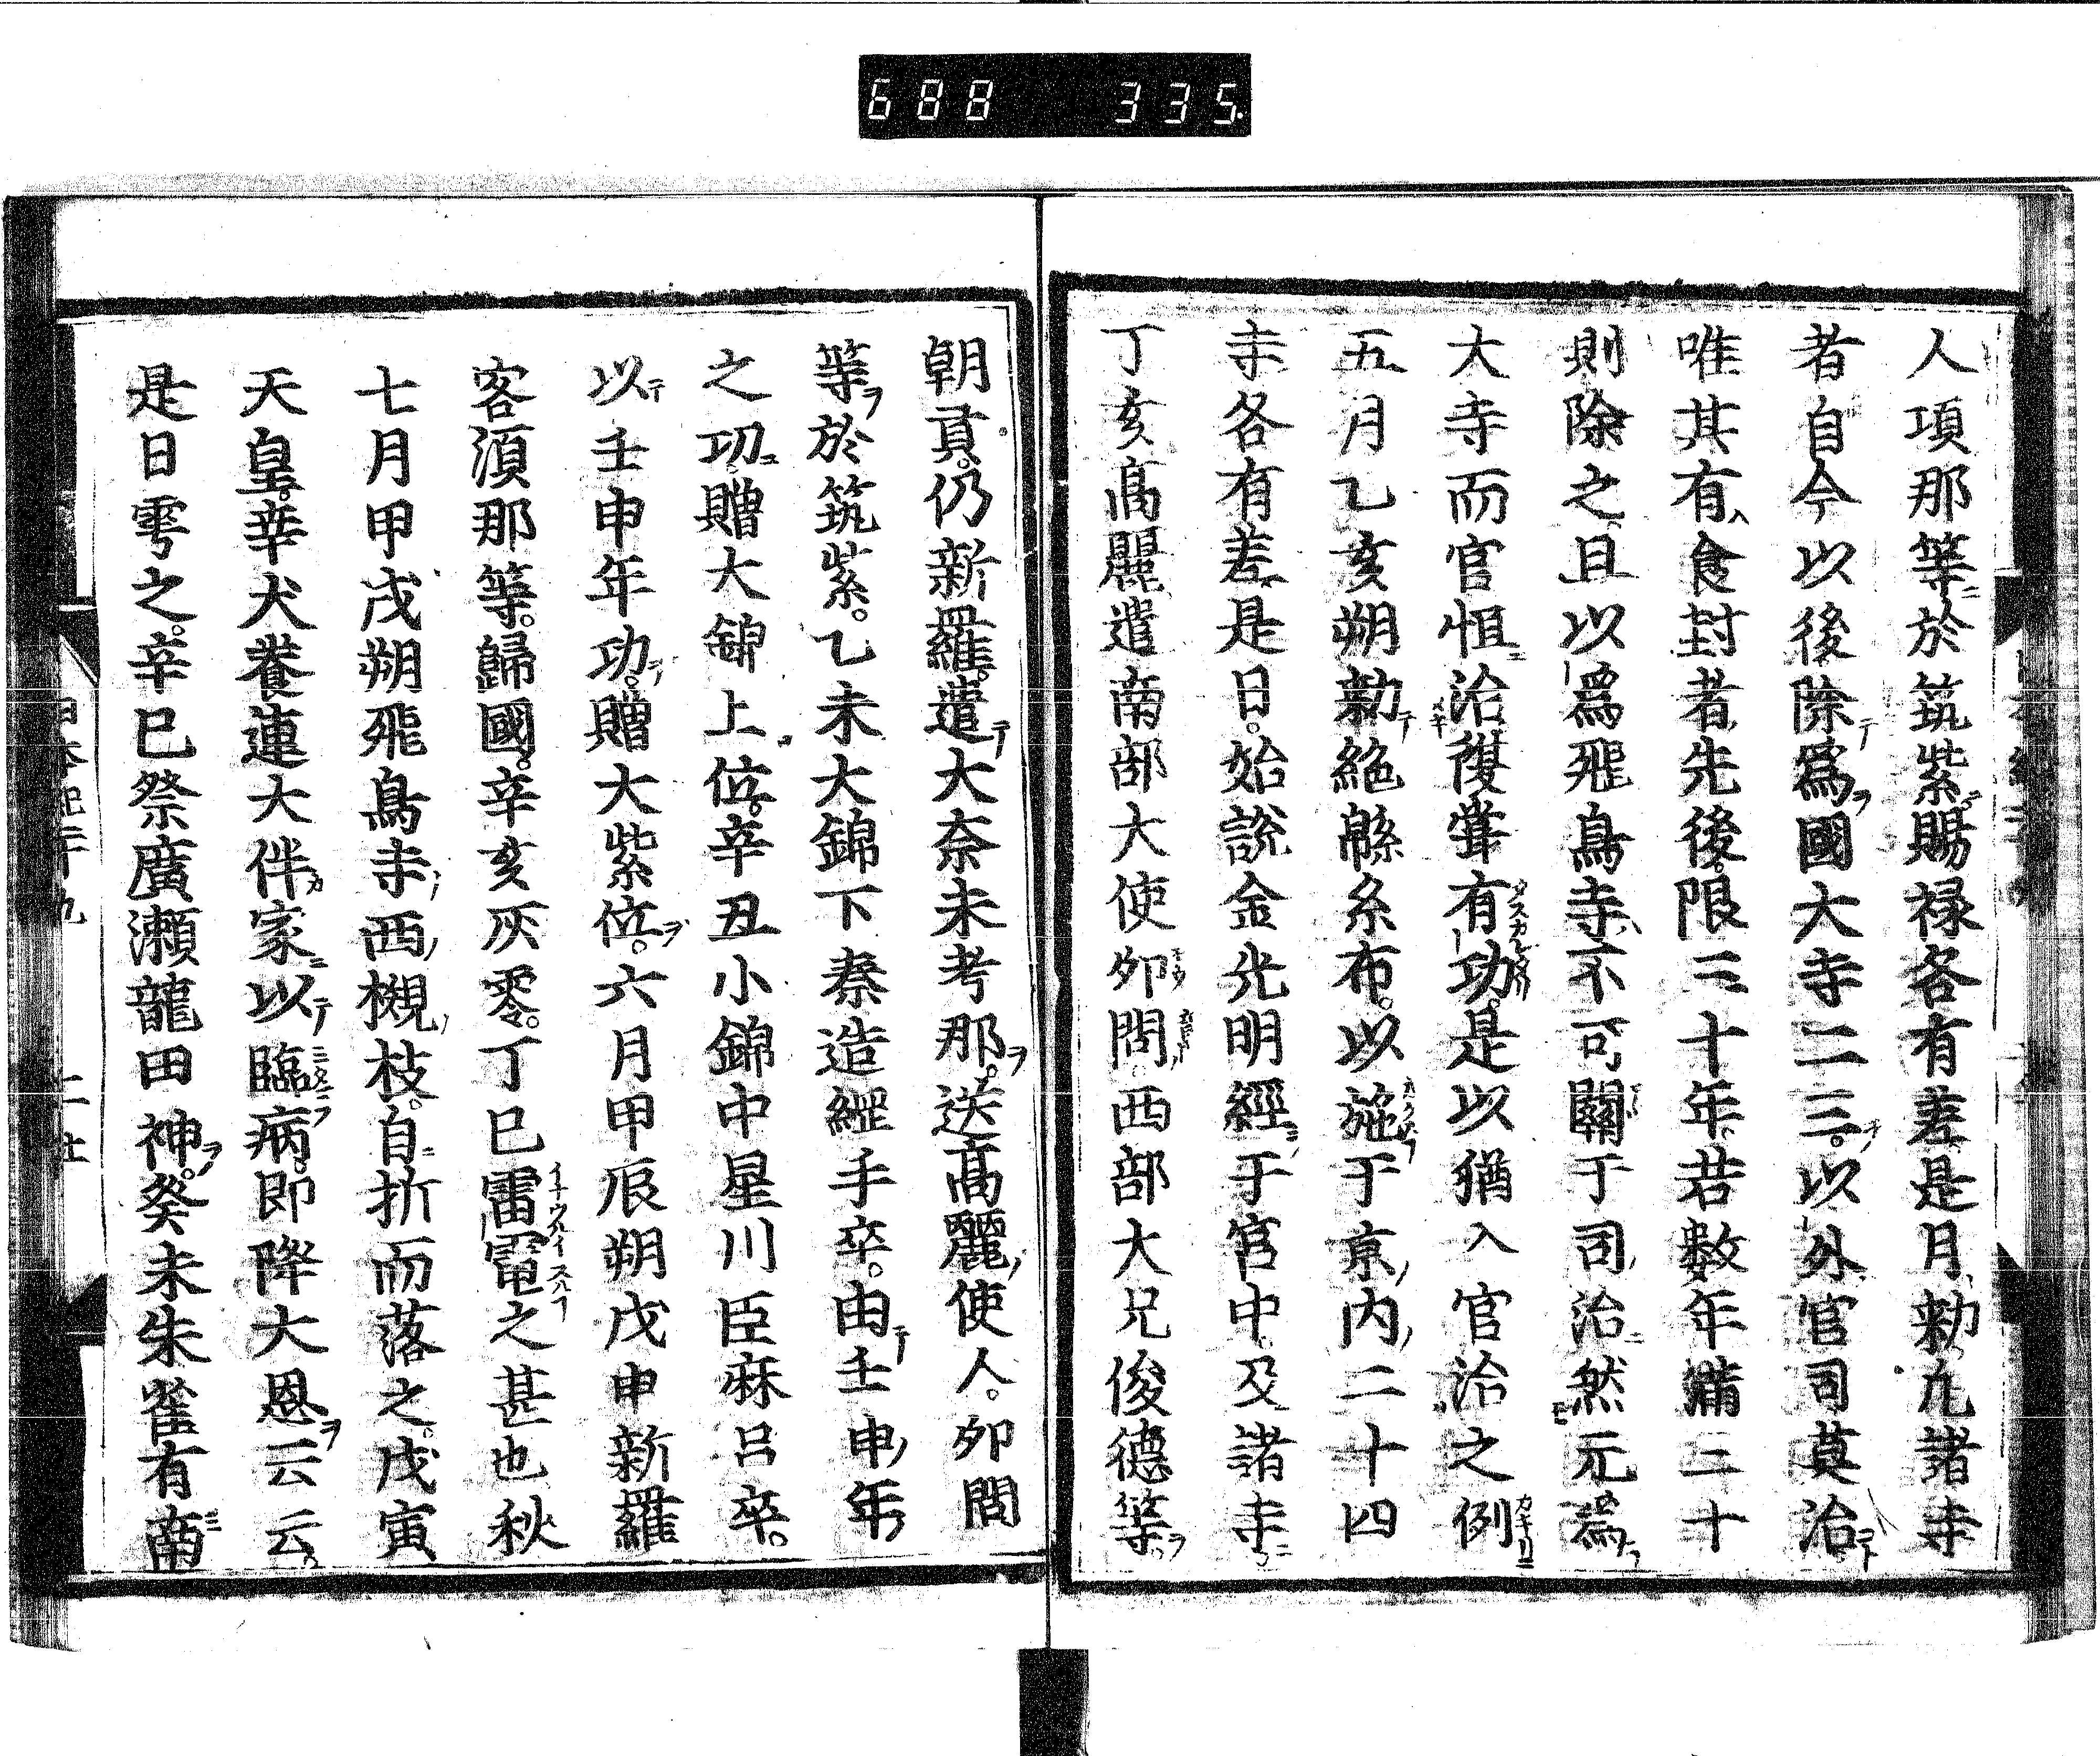 688 335
人項那等於筑紫賜禄各有差是月勅九諸寺
者自今以後除爲國大寺二三以外官司莫治
唯其有食封者先後限三十年若數年滿三十
則除之且以爲飛鳥寺不可關于司治然元爲
大寺而官恒治復甞有功是以猶入官治之例
五月乙亥朔勅絁緜糸布以施于京内二十四
寺各有差是日始說金光明經于宮中及諸寺
丁亥髙麗遣南部大使夘問西部大兄俊德等
朝貢仍新羅遣大奈末考那送髙麗使人夘問
等於筑紫乙未大錦下秦造綱手卒由壬申年
之功贈大錦上位辛丑小錦中星川臣麻呂卒
以壬申年功贈大紫位六月甲辰朔戊申新羅
客湏那等歸國辛亥灰零丁巳雷電之甚也秋
七月甲戌朔飛鳥寺西槻枝自折而落之戊寅
天皇幸犬養連大伴家以臨病即降大恩云云
是日雩之辛巳祭廣瀬龍田神癸未朱雀有南
日本紀二十九